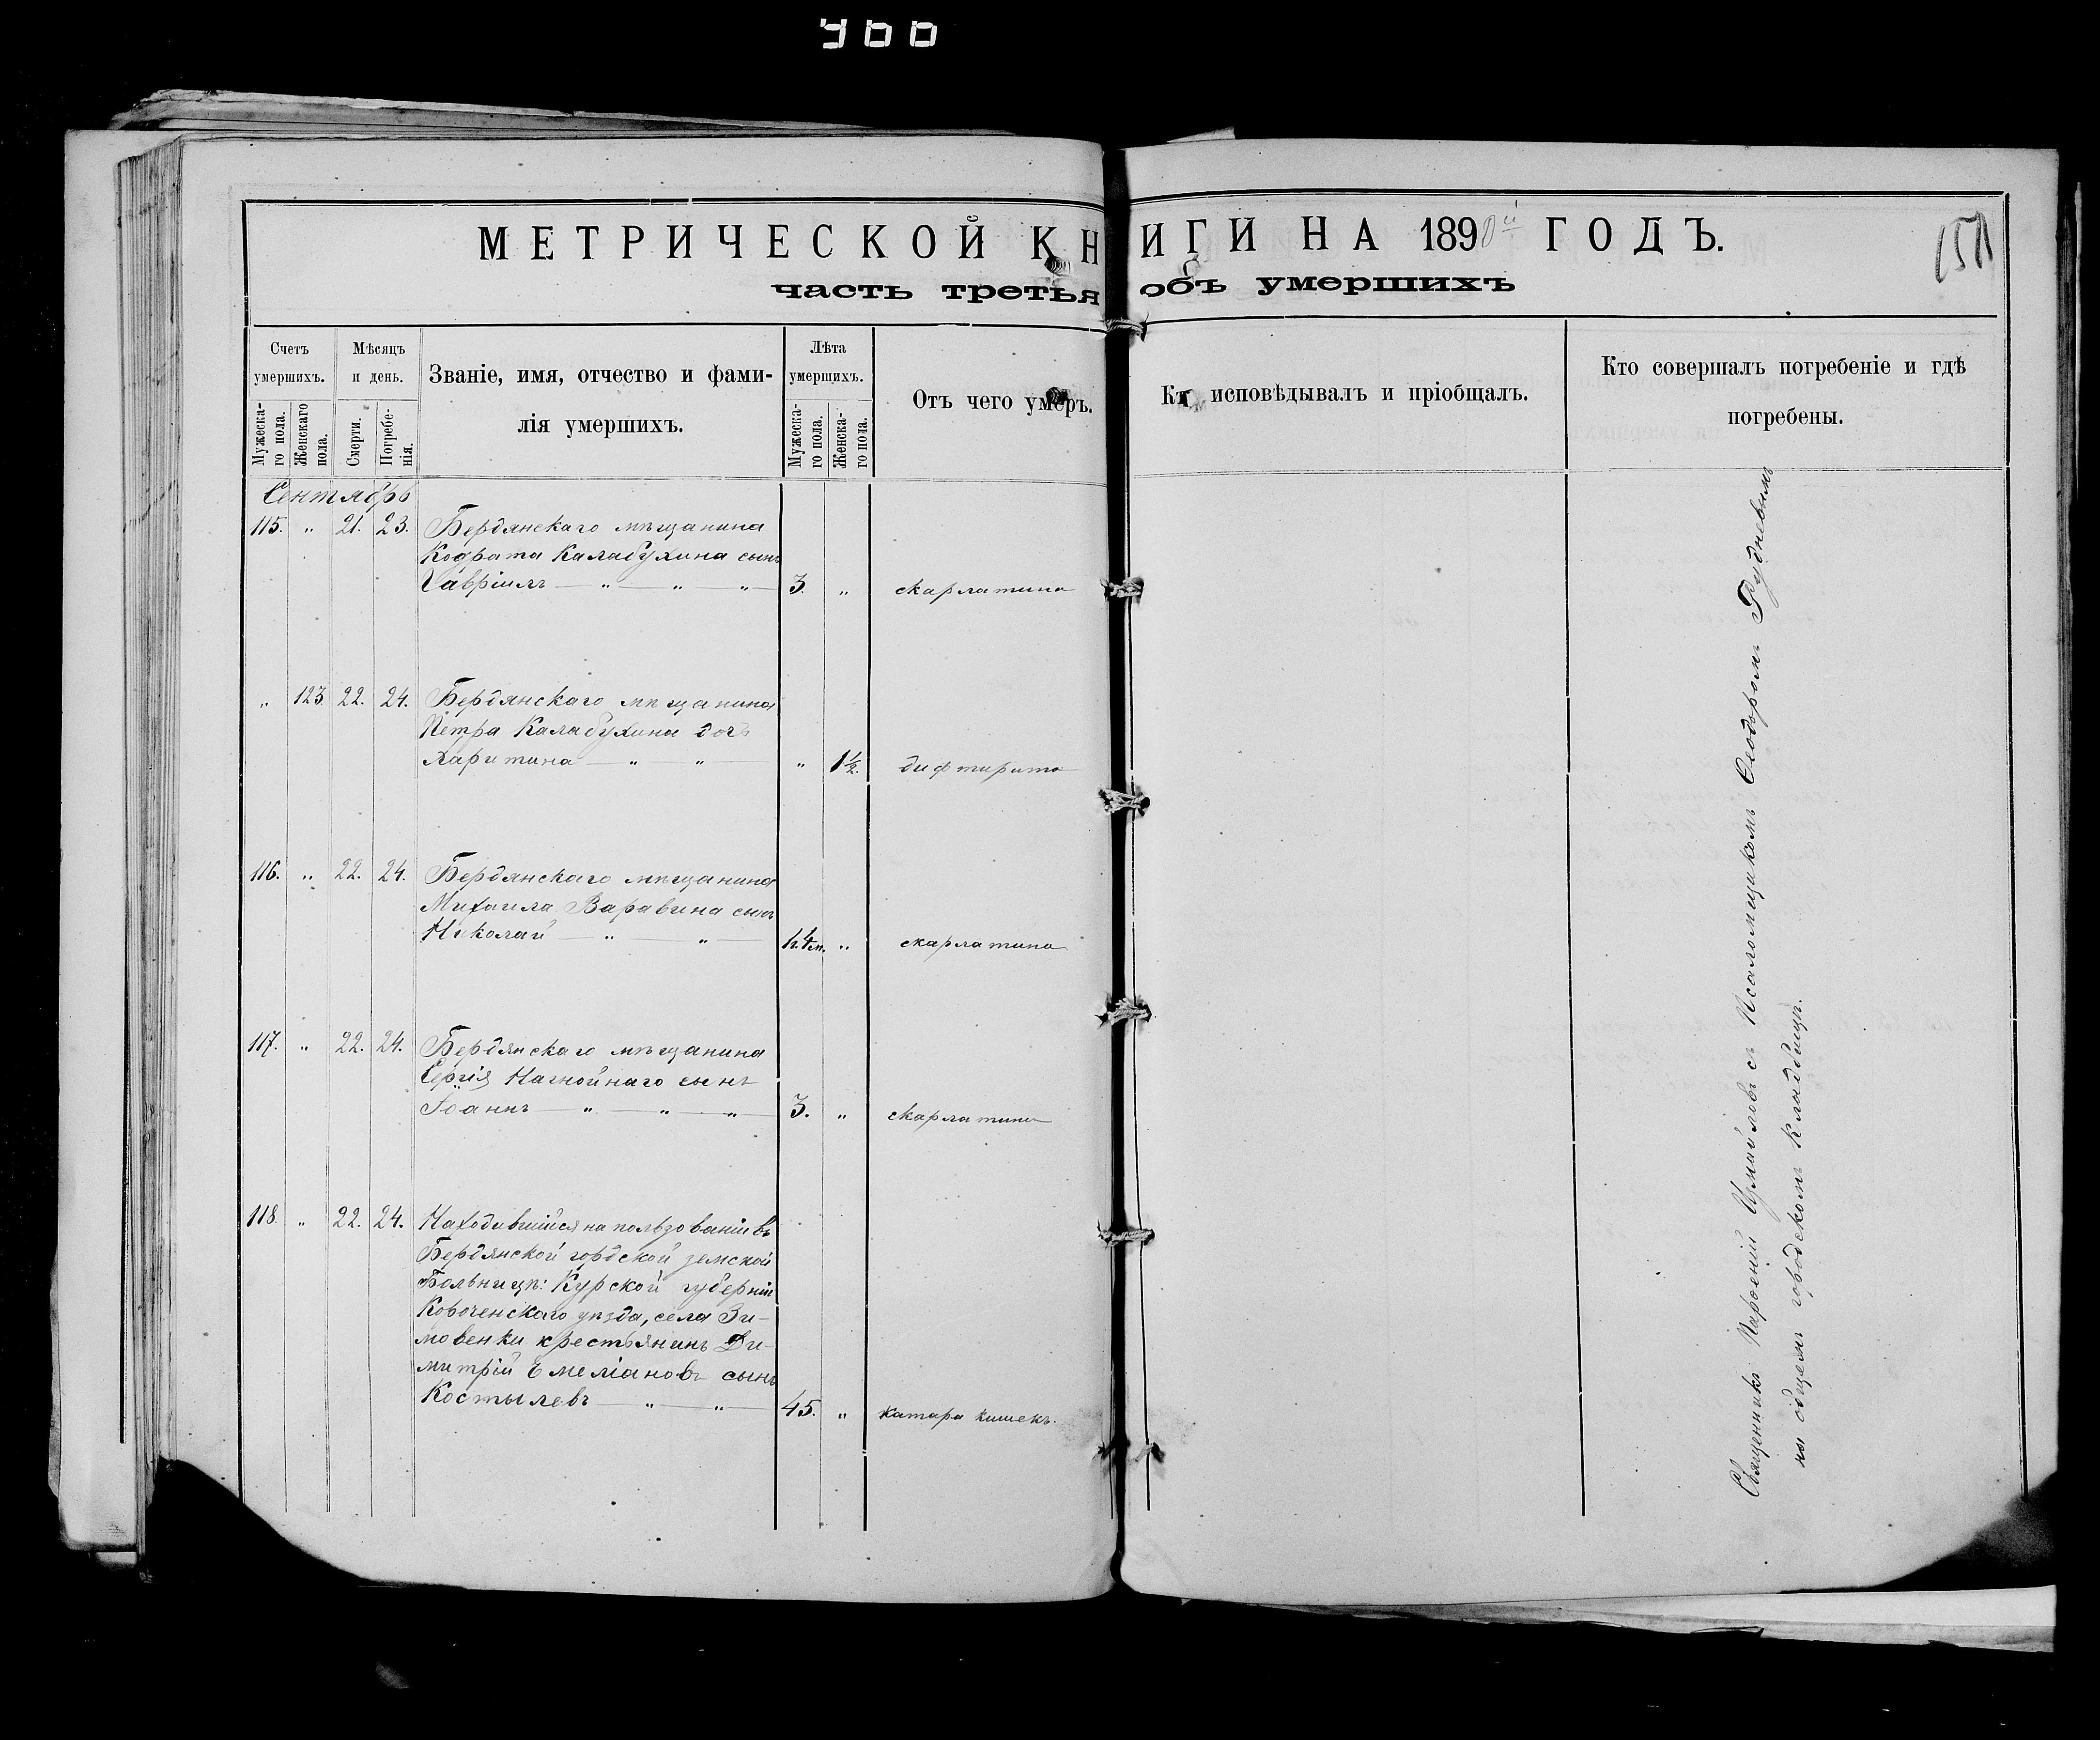 900
МЕТРИЧЕСКОЙ КНИГИ НА 1890й ГОДЪ.
151
часть третья объ умершихъ
Счетъ умершихъ.
Мужеска-
го пола.
Женскаго
пола.
Мѣсяцъ
и день.
Смерти.
Погребе-
нія.
Званіе, имя, отчество и фами-
лія умершихъ.
Лѣта
умерщихъ.
Мужеска-
го пола.
Женска-
го пола.
Отъ чего умеръ.
Кто исповѣдывалъ и пріобщалъ.
Кто совершалъ погребеніе и гдѣ
погребены.
Сентябрь
115. " 21. 23. Бердянскаго мѣщанина
Кодрата Калабухина сынъ
Гавріилъ — " — " — " — 3. " скарлатина
" 123 22. 24. Бердянскаго мѣщанина
Петра Калабухина дочь
Харитина — " — " — " 1½. дифтирита
116. " 22. 24. Бердянскаго мѣщанина
Михаила Варавина сынъ
Николай — " — " — " скарлатина
117. " 22. 24. Бердянскаго мѣщанина
Сергія Нагнойнаго сынъ
Іоаннъ — " — " — " — 3. " скарлатина
118. " 22. 24. Находившійся на пользованіи въ
Бердянской гордской земской
Больницѣ: Курской губерніи
Короченскаго уѣзда, села Зи-
мовенки крестьянинъ Ди-
митрій Емеліановъ сынъ
Костылевъ — " — " — 45. " катара кишекъ.
Священникъ Парѳеній Измайловъ съ Псаломщикомъ Ѳеодоромъ Рудневымъ
на общемъ городскомъ кладбищѣ.